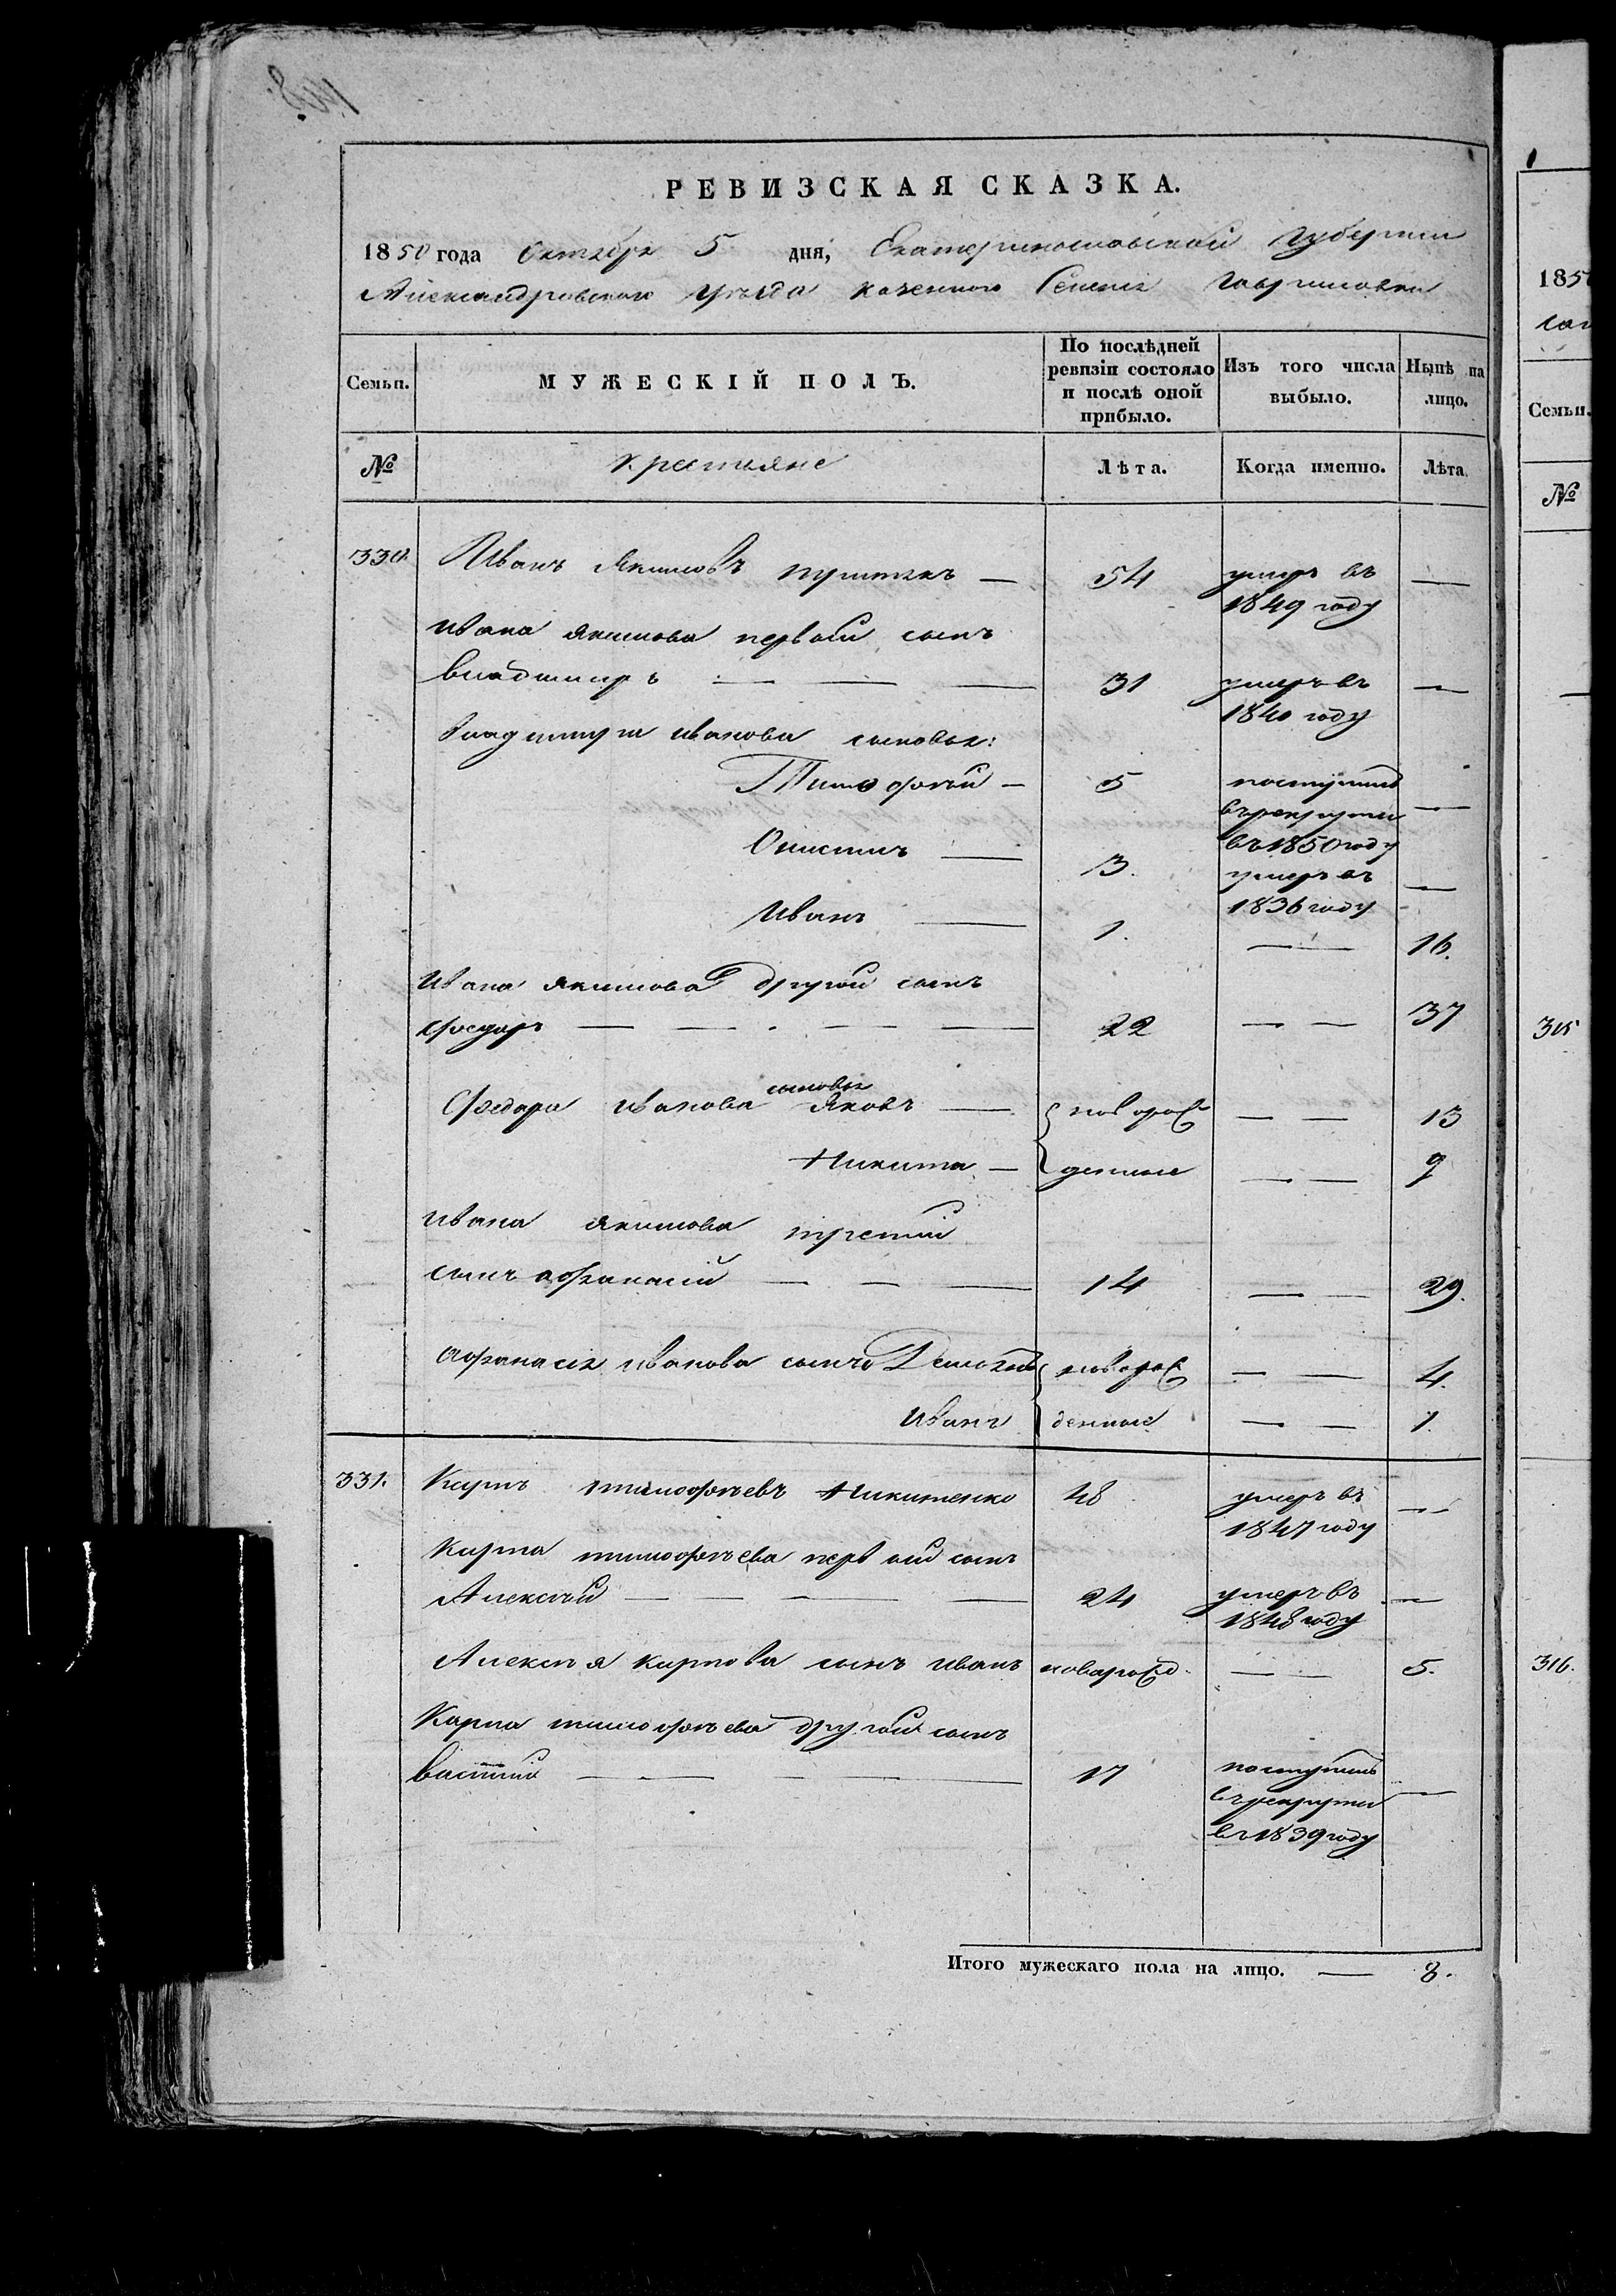 РЕВИЗСКАЯ СКАЗКА.
1850 года Октября 5 дня, Екатеринославской Губернии
Александровского Уезда казенного Селения Гавриловки
Семьи. МУЖЕСКІЙ ПОЛЪ. По послѣдней ревизіи состояло и послѣ оной прибыло. Изъ того числа выбыло. Нынѣ на лицо.
№ крестьяне Лѣта. Когда именно. Лѣта.
330. Иванъ Якимовъ — 54 умеръ въ —
1849 году
Ивана Якимова первый сынъ
Владимиръ — — — 31 умеръ въ —
1840 году
Владимира Иванова сыновья:
Тимофѣй — 5 поступилъ
въ рекруты —
въ 1850 году
Онисимъ — 3. умеръ въ —
1836 году
Иванъ — 1. — 16.
Ивана Якимова другой сынъ
Федоръ — — — — — 22 — — 37
Федора Иванова сыновья Яковъ — новорож — — 13
Никита — денные — — 9
Ивана Якимова третий
сынъ Афанасий — — — 14 — — 29.
Афанасия Иванова сынъ новорож — — 4.
Иванъ денные — — 1.
331. Карпъ Тимофѣевъ Никитенко 48 умеръ въ —
1847 году
Карпа Тимофѣева первый сынъ
Алексѣй — — — — — 24 умеръ въ —
1848 году
Алексѣя Карпова сынъ Иванъ новарожд. — — 5.
Карпа Тимофѣева другой сынъ
Василий — — — — 17 поступилъ
въ рекруты —
въ 1839 году
Итого мужескаго пола на лицо. — 8.
1850
Семьи.
№
315
316.